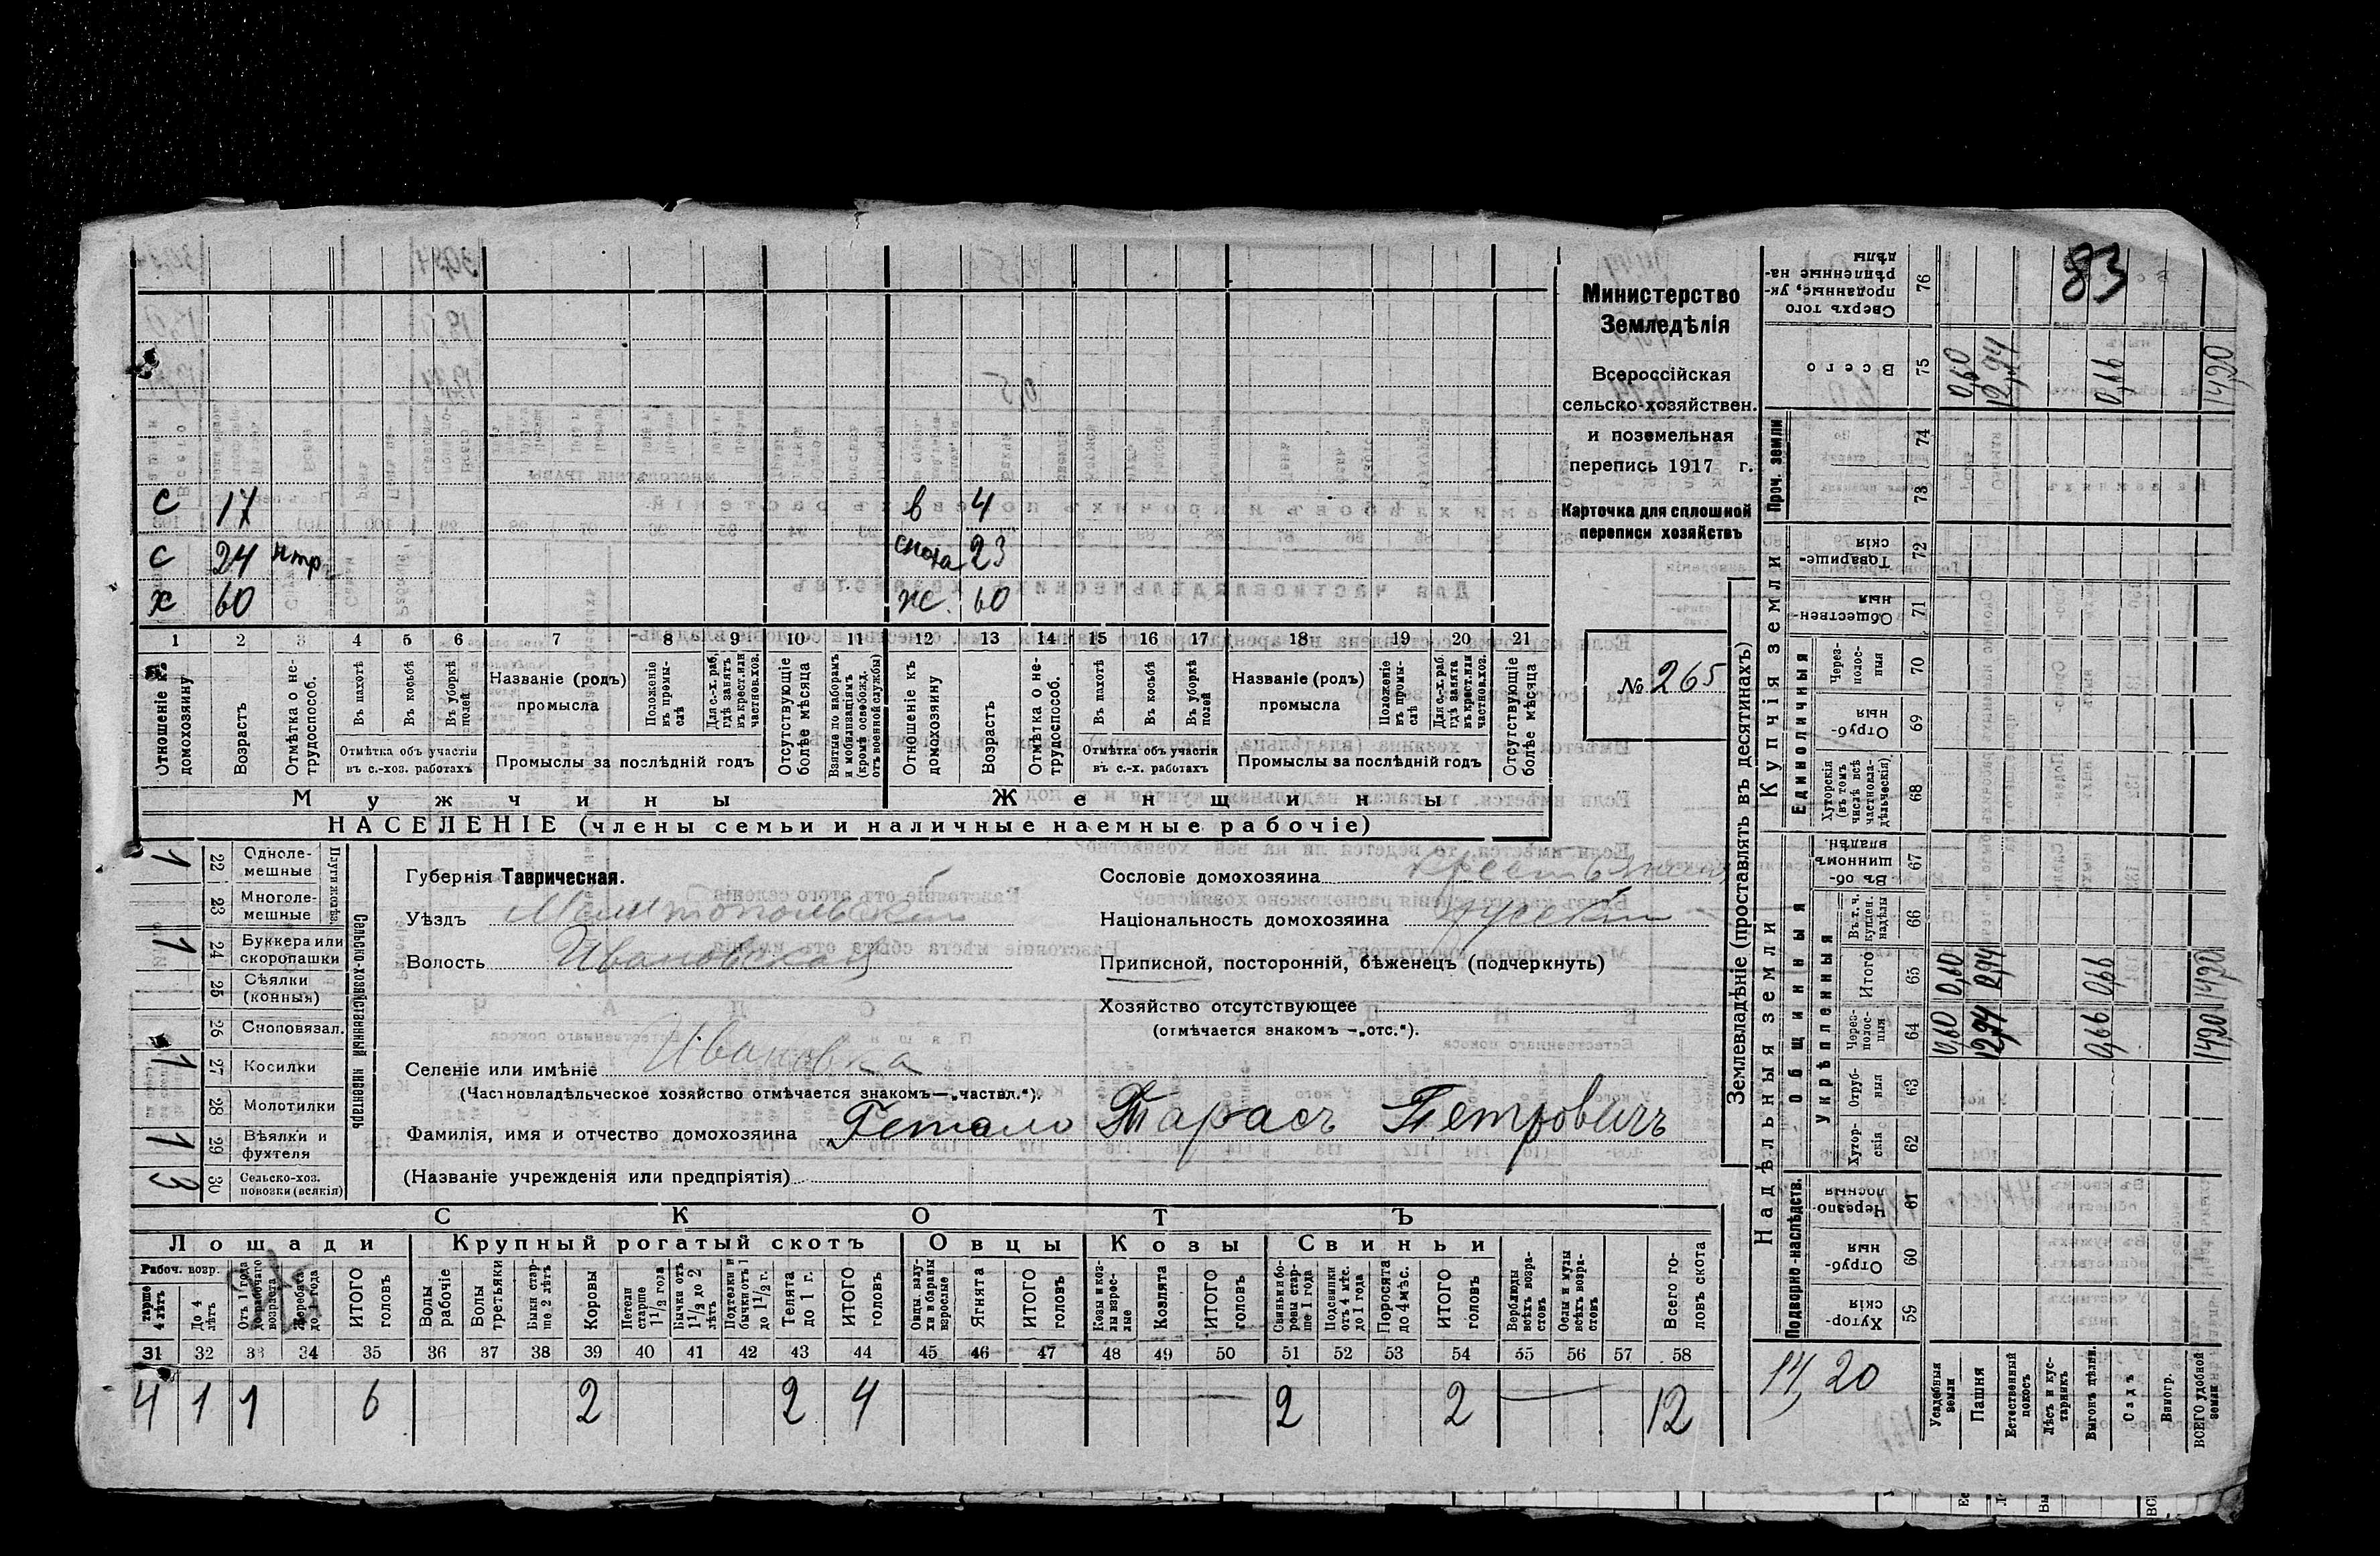 83
Министерство
Земледѣлія
Всероссійская
сельско-хозяйствен.
и поземельная
перепись 1917 г.
Карточка для сплошной
переписи хозяйствъ
№ 265
с 17
с 24 нтр.
х 60
в 4
сноха 23
ж. 60
1 2 3 4 5 6 7 8 9 10 11 12 13 14 15 16 17 18 19 20 21
Отношеніе къ домохозяину
Возрастъ
Отмѣтка о нетрудоспособ.
Въ пахотѣ
Въ косьбѣ
Въ уборкѣ полей
Отмѣтка объ участіи
въ с.-хоз. работахъ
Названіе (родъ)
промысла
Положеніе въ промыслѣ
Для с.-х. раб. гдѣ занятъ въ крест. или частнов. хоз.
Промыслы за послѣдній годъ
Отсутствующіе болѣе мѣсяца
Взятые по наборамъ и мобилизаціямъ (кромѣ освобожд. отъ военной службы)
Отношеніе къ домохозяину
Возрастъ
Отмѣтка о нетрудоспособ.
Въ пахотѣ
Въ косьбѣ
Въ уборкѣ полей
Отмѣтка объ участіи
въ с.-х. работахъ
Названіе (родъ)
промысла
Положеніе въ промыслѣ
Для с.-х. раб. гдѣ занята въ крест. или частнов. хоз.
Промыслы за послѣдній годъ
Отсутствующіе болѣе мѣсяца
Мужчины Женщины
НАСЕЛЕНІЕ (члены семьи и наличные наемные рабочіе)
Сельско-хозяйственный инвентарь
1 22 Одноле-мешные
23 Многоле-мешные
1 24 Буккера или скоропашки
25 Сѣялки (конныя)
26 Сноповязал.
1 27 Косилки
28 Молотилки
1 29 Вѣялки и фухтеля
3 30 Сельско-хоз. повозки (всякія)
Губернія Таврическая.
Уѣздъ Мелитопольский
Волость Ивановская
Селеніе или имѣніе Ивановка
(Частновладѣльческое хозяйство отмѣчается знакомъ—„частвл.“).
Сословіе домохозяина крестьянин
Національность домохозяина русский
Приписной, посторонній, бѣженецъ (подчеркнуть)
Хозяйство отсутствующее
(отмѣчается знакомъ —„отс.“).
Фамилія, имя и отчество домохозяина Гетало Тарасъ Петровичъ
(Названіе учрежденія или предпріятія)
СКОТЪ
Лошади Крупный рогатый скотъ Овцы Козы Свиньи
Рабоч. возр.
старше 4 лѣтъ
До 4 лѣтъ
Отъ 1 года до рабочаго возраста
Жеребята до 1 года
ИТОГО головъ
Волы рабочіе
Волы третьяки
Быки старше 2 лѣтъ
Коровы
Нетели старше 1½ года
Бычки отъ 1½ до 2 лѣтъ
Подтелки и бычки отъ 1 до 1½ г.
Телята до 1 г.
ИТОГО головъ
Овцы, валухи и бараны взрослые
Ягнята
ИТОГО головъ
Козы и козлы взрослые
Козлята
ИТОГО головъ
Свиньи и боровы старше 1 года
Подсвинки отъ 4 мѣс. до 1 года
Поросята до 4 мѣс.
ИТОГО головъ
Верблюды всѣхъ возрастовъ
Ослы и мулы всѣхъ возрастовъ
Всего головъ скота
31 32 33 34 35 36 37 38 39 40 41 42 43 44 45 46 47 48 49 50 51 52 53 54 55 56 57 58
4 1 1 6 2 2 4 2 2 12
Землевладѣніе (проставлять въ десятинахъ)
Надѣльныя земли Купчія земли Проч. земли
Подворно-наслѣдств.
Общинныя
Укрѣпленныя
Единоличныя
Сверхъ того проданныя, укрѣпленныя надѣлы 76
Всего 75 0,60 12,94 0,66 14,20
74
73
Товарищескія 72
Общественныя 71
Черезполосныя 70
Отрубныя 69
Хуторскія (въ томъ числѣ всѣ частновладѣльческія) 68
Въ общинномъ владѣн. 67
Въ т. ч. куплен. надѣлы 66
Итого 65 0,60 12,94 0,66 14,20
Черезполосныя 64 0,60 12,94 0,66 14,20
Отрубныя 63
Хуторскія 62
Черезполосныя 61
Отрубныя 60
Хуторскія 59
14,20
Усадебныя земли
Пашня
Естественный покосъ
Лѣсъ и кустарникъ
Выгонъ дѣлян.
Садъ
Виногр.
ВСЕГО удобной земли